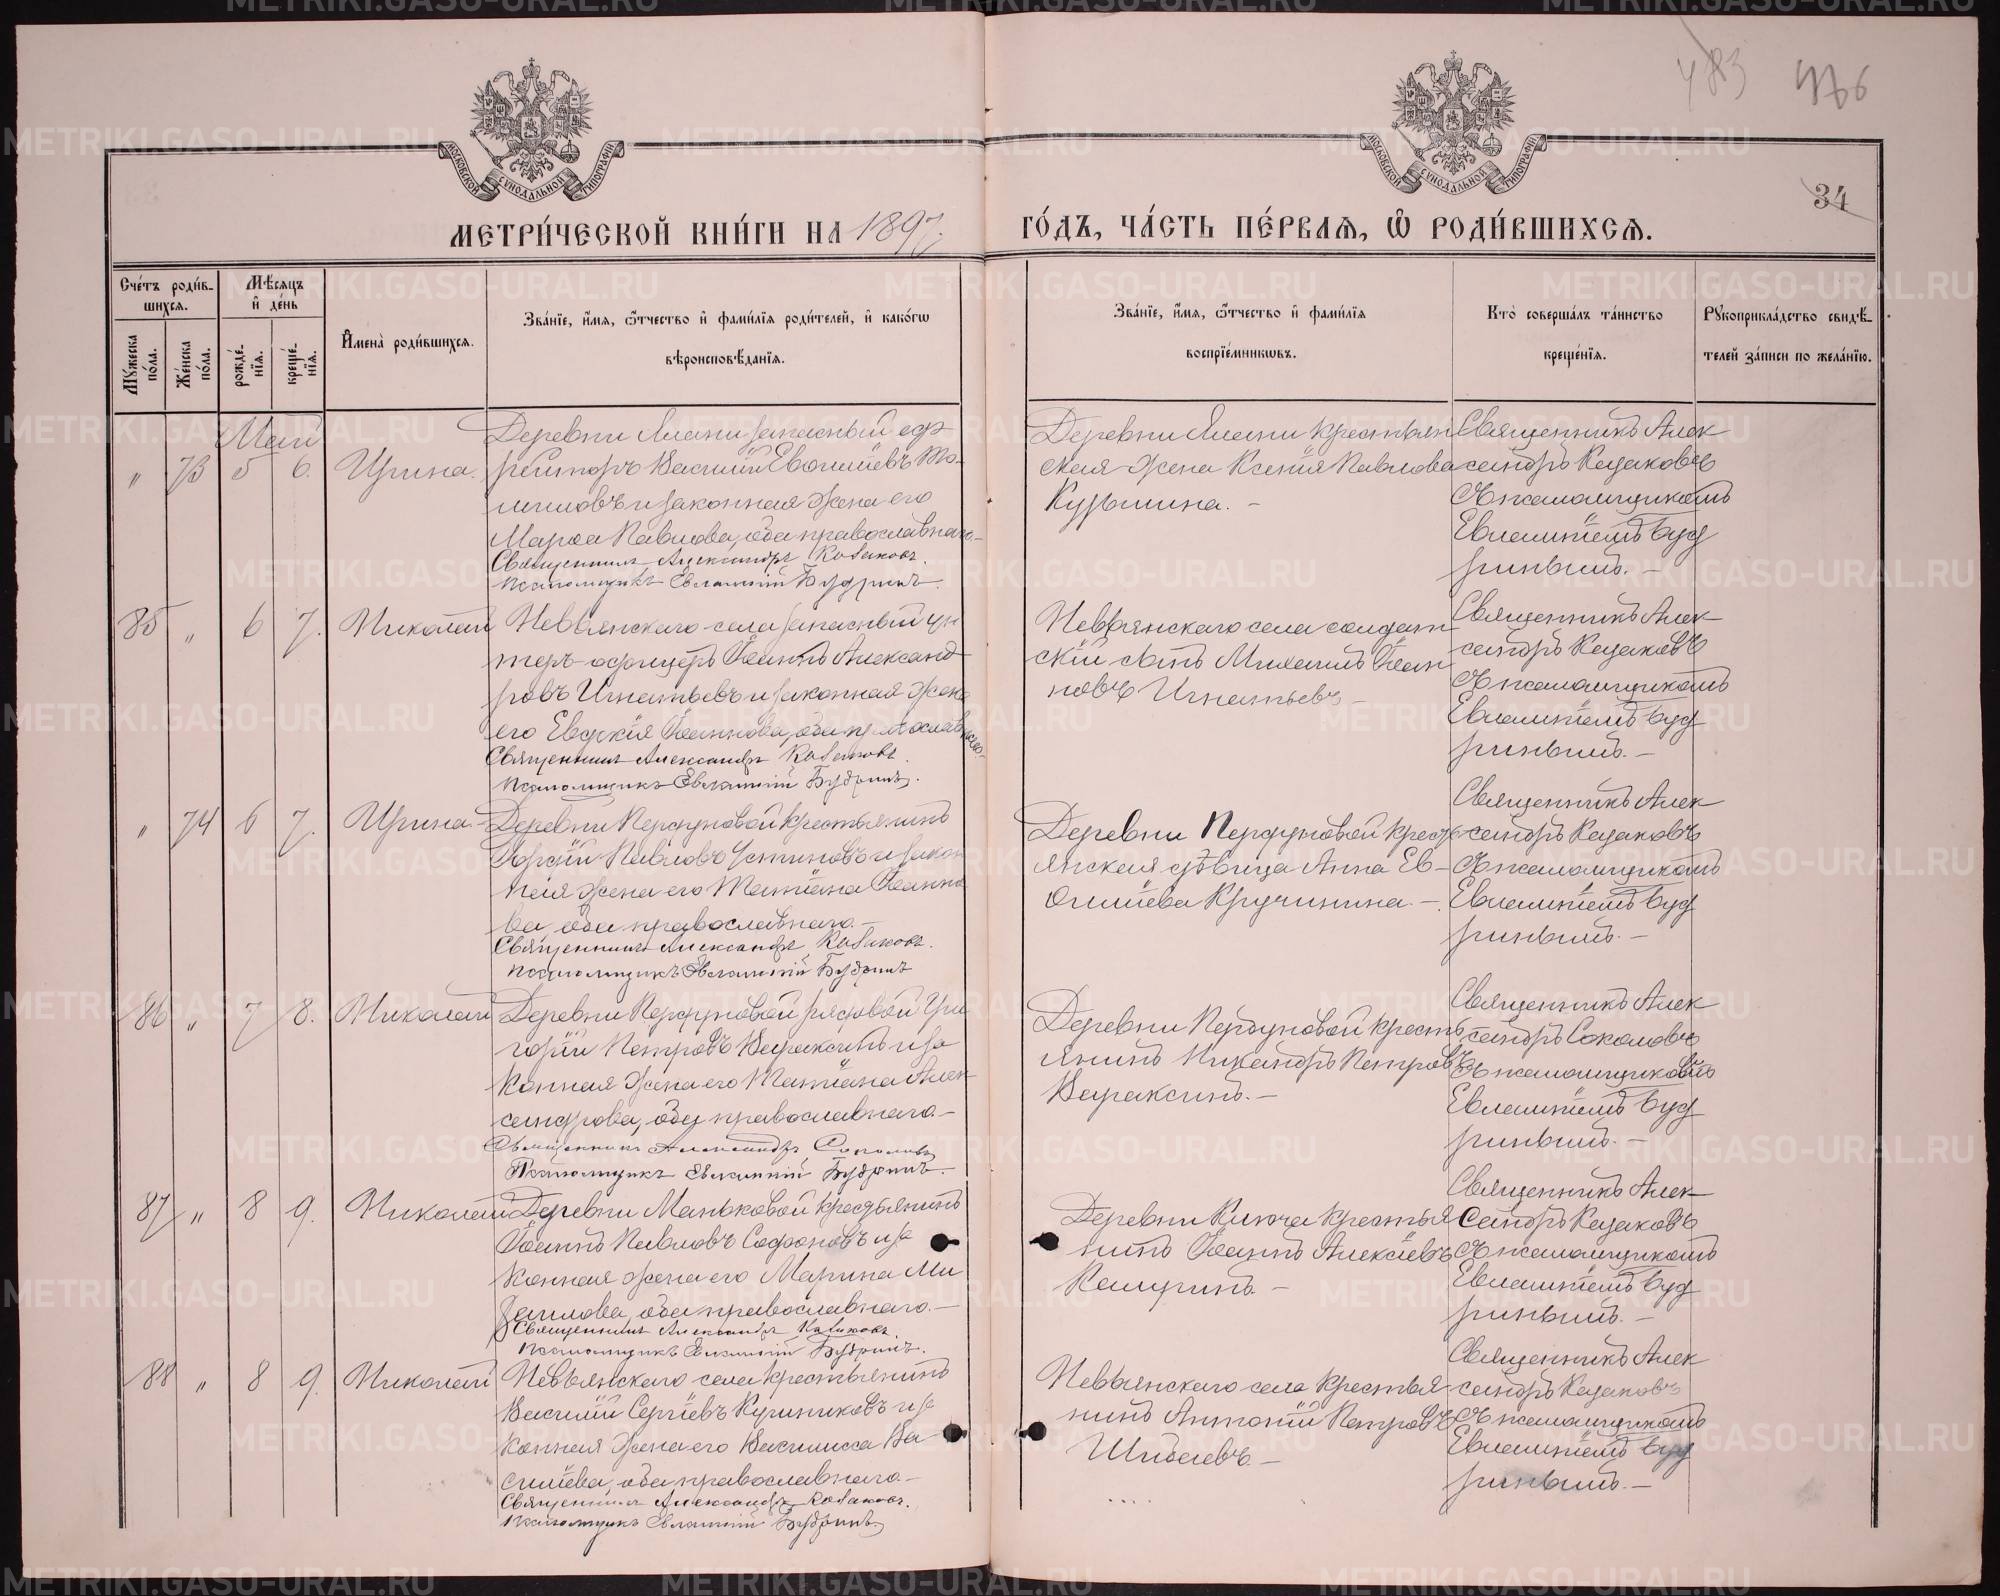 483 476
34
МОСКОВСКОЙ СѴНОДАЛЬНОЙ ТИПОГРАФІИ
МОСКОВСКОЙ СѴНОДАЛЬНОЙ ТИПОГРАФІИ
МЕТРИ́ЧЕСКОЙ КНИ́ГИ НА 1897 ГО́ДЪ, ЧА́СТЬ ПЕ́РВАѦ, Ѽ РОДИ́ВШИХСѦ.
Сче́тъ роди́в-
шихсѧ.
Мꙋ́жеска по́ла.
Же́нска по́ла.
Мѣ́сѧцъ
и҆ де́нь
рожде́-
нїѧ.
креще́-
нїѧ.
И҆мена̀ роди́вшихсѧ.
Зва́нїе, и҆́мѧ, ѻ҆́тчество и҆ фами́лїѧ роди́телей, и҆ како́гѡ
вѣроисповѣ́данїѧ.
Зва́нїе, и҆́мѧ, ѻ҆́тчество и҆ фами́лїѧ
воспрїе́мникѡвъ.
Кто̀ соверша́лъ та́инство
креще́нїѧ.
Рꙋкоприкла́дство свидѣ́-
телей за́писи по жела́нїю.
Май
" 73 5 6. Ирина.
Деревни Ялани запасный еф
рейторъ Василій Евѳиміевъ То-
миловъ и законная жена его
Марѳа Павлова, оба православнаго.-
Священникъ Александръ Казаковъ.
Псаломщикъ Евлампій Будринъ.
Деревни Ялани крестьян
ская жена Ксенія Павлова
Кузьмина. -
Священникъ Алек
сандръ Казаковъ
съ псаломщикомъ
Евлампіемъ Буд
ринымъ. -
85 " 6 7. Николай
Невьянскаго села запасный ун
теръ-офицеръ Іоаннъ Александ
ровъ Игнатьевъ и законная жена
его Евдокія Іоаннова, оба православнаго-
Священникъ Александръ Казаковъ.
Псаломщикъ Евлампій Будринъ.
Невьянскаго села солдат
скій сынъ Михаилъ Іоан
новъ Игнатьевъ -
Священникъ Алек-
сандръ Казаковъ
съ псаломщикомъ
Евлампіемъ Буд
ринымъ. -
" 74 6 7. Ирина
Деревни Перфуновой крестьянинъ
Павловъ Устиновъ и закон
ная жена его Татіана Іоанно
ва, оба православнаго. -
Священникъ Александръ Казаковъ.
Псаломщикъ Евлампій Будринъ
Деревни Перфуновой кресть-
янская дѣвица Анна Ев-
ѳиміева Кручинина. -
Священникъ Алек-
сандръ Казаковъ
съ псаломщикомъ
Евлампіемъ Буд
ринымъ. -
86 " 7 8. Николай
Деревни Перфуновой рядовой Гри
горій Петровъ Вераксинъ и за
конная жена его Татіана Алек
сандрова, оба православнаго. -
Священникъ Александръ Соколовъ
Псаломщикъ Евлампій Будринъ. -
Деревни Перфуновой кресть
янинъ Никандръ Петровъ
Вераксинъ. -
Священникъ Алек-
сандръ Соколовъ
съ псаломщикомъ
Евлампіемъ Буд
ринымъ. -
87 " 8 9. Николай
Деревни Маньковой крестьянинъ
Іоаннъ Павловъ Софоновъ и за
конная жена его Марина Ми
хаилова, оба православнаго. -
Священникъ Александръ Казаковъ.
Псаломщикъ Евлампій Будринъ.
Деревни Ключа крестья
нинъ Іоаннъ Алексѣевъ
Кащринъ -
Священникъ Алек-
сандръ Казаковъ
съ псаломщикомъ
Евлампіемъ Буд
ринымъ. -
88 " 8 9. Николай
Невьянскаго села крестьянинъ
Василій Сергіевъ и за
конная жена его Василисса Ва
силіева, оба православнаго. -
Священникъ Александръ Казаковъ.
Псаломщикъ Евлампій Будринъ
Невьянскаго села крестья
нинъ Антоній Петровъ
Шибаевъ. -
Священникъ Алек
сандръ Казаковъ
съ псаломщикомъ
Евлампіемъ Буд
ринымъ. -
METRIKI.GASO-URAL.RU